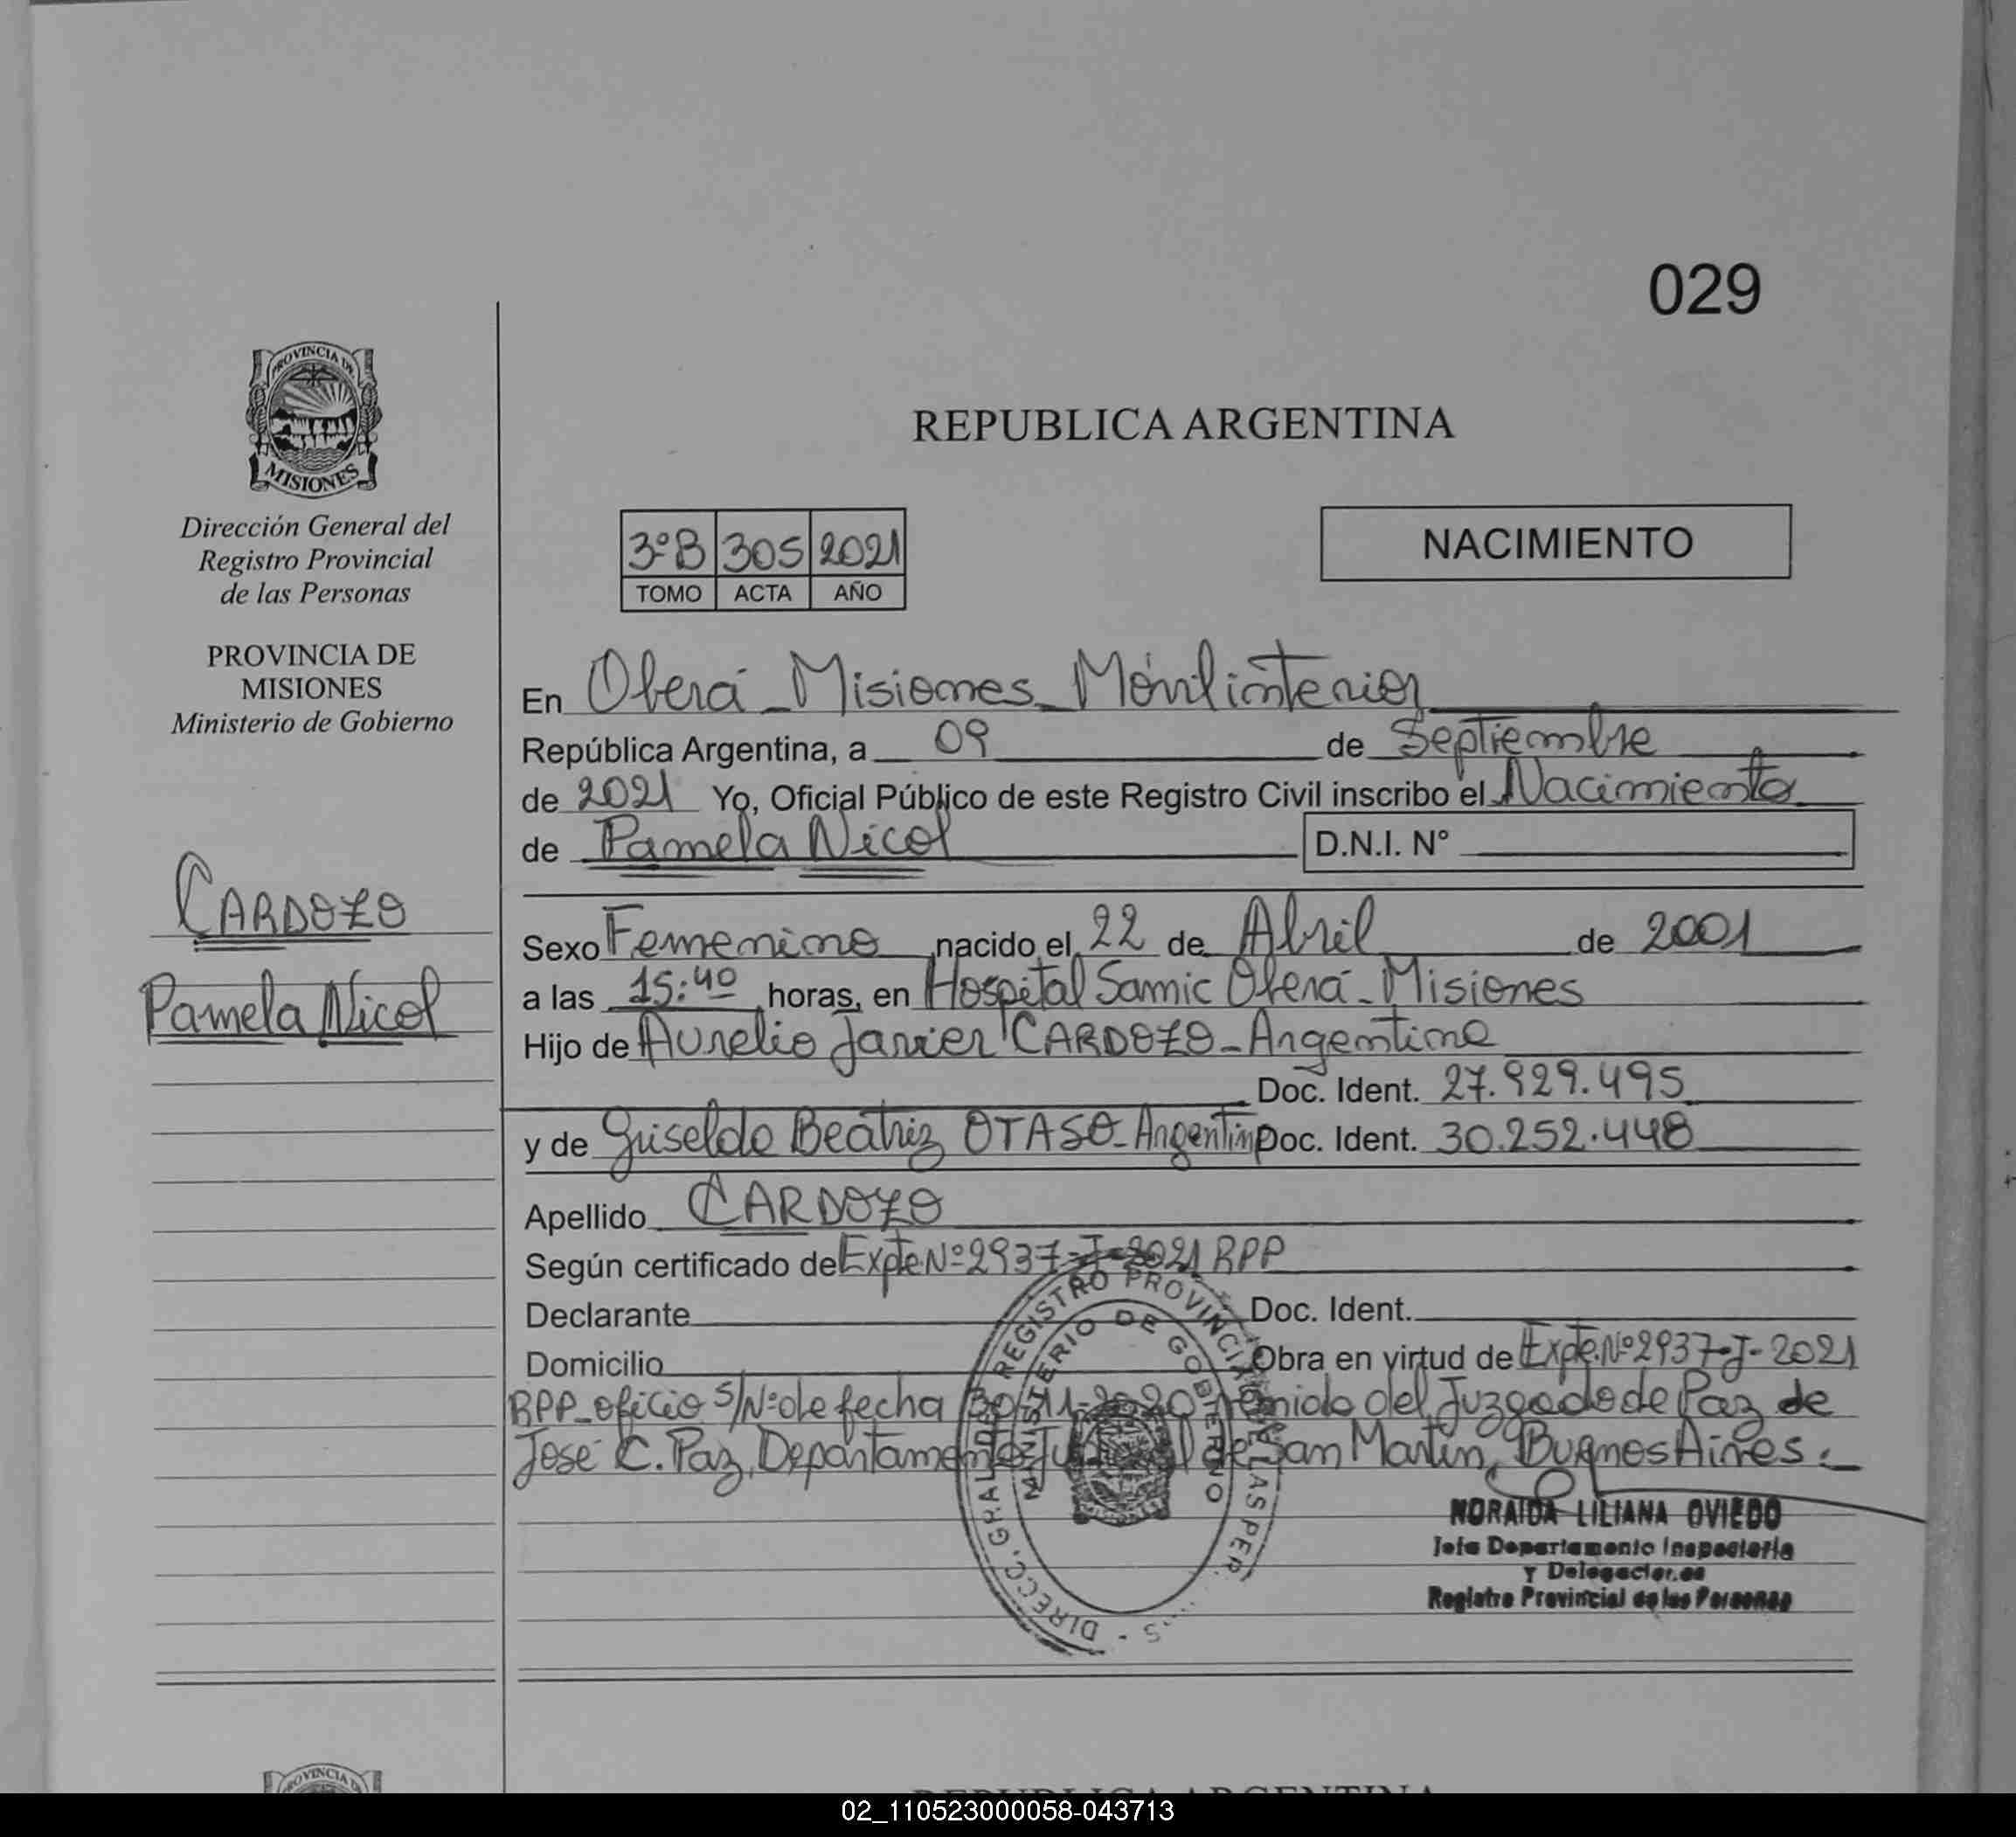 029
PROVINCIA DE
MISIONES
Dirección General del
Registro Provincial
de las Personas
PROVINCIA DE
MISIONES
Ministerio de Gobierno
CARDOZO
Pamela Nicol
REPUBLICA ARGENTINA
3ºB 305 2021
TOMO ACTA AÑO
NACIMIENTO
En Oberá - Misiones - Móvil interior
República Argentina, a 09 de Septiembre
de 2021 Yo, Oficial Público de este Registro Civil inscribo el Nacimiento
de Pamela Nicol D.N.I. Nº
Sexo Femenino nacido el 22 de Abril de 2001
a las 15:40 horas, en Hospital Samic Oberá - Misiones
Hijo de Aurelio Javier CARDOZO - Argentino
Doc. Ident. 27.929.495
y de Griselda Beatriz OTASO - Argentina Doc. Ident. 30.252.448
Apellido CARDOZO
Según certificado de Expte Nº 2937-J-2021 RPP
Declarante Doc. Ident.
Domicilio Obra en virtud de Expte. Nº 2937-J-2021
RPP - oficio S/Nº de fecha 30-11-2020 del Juzgado de Paz de
José C. Paz, Departamento Judicial de San Martín, Buenos Aires.
DIRECC. GRAL. DEL REGISTRO PROVINCIAL DE LAS PER
MINISTERIO DE GOBIERNO
NORAIDA LILIANA OVIEDO
Jefa Departamento Inspectoría
Y Delegaciones
Registro Provincial de las Personas
PROVINCIA DE
REPUBLICA ARGENTINA
02_110523000058-043713